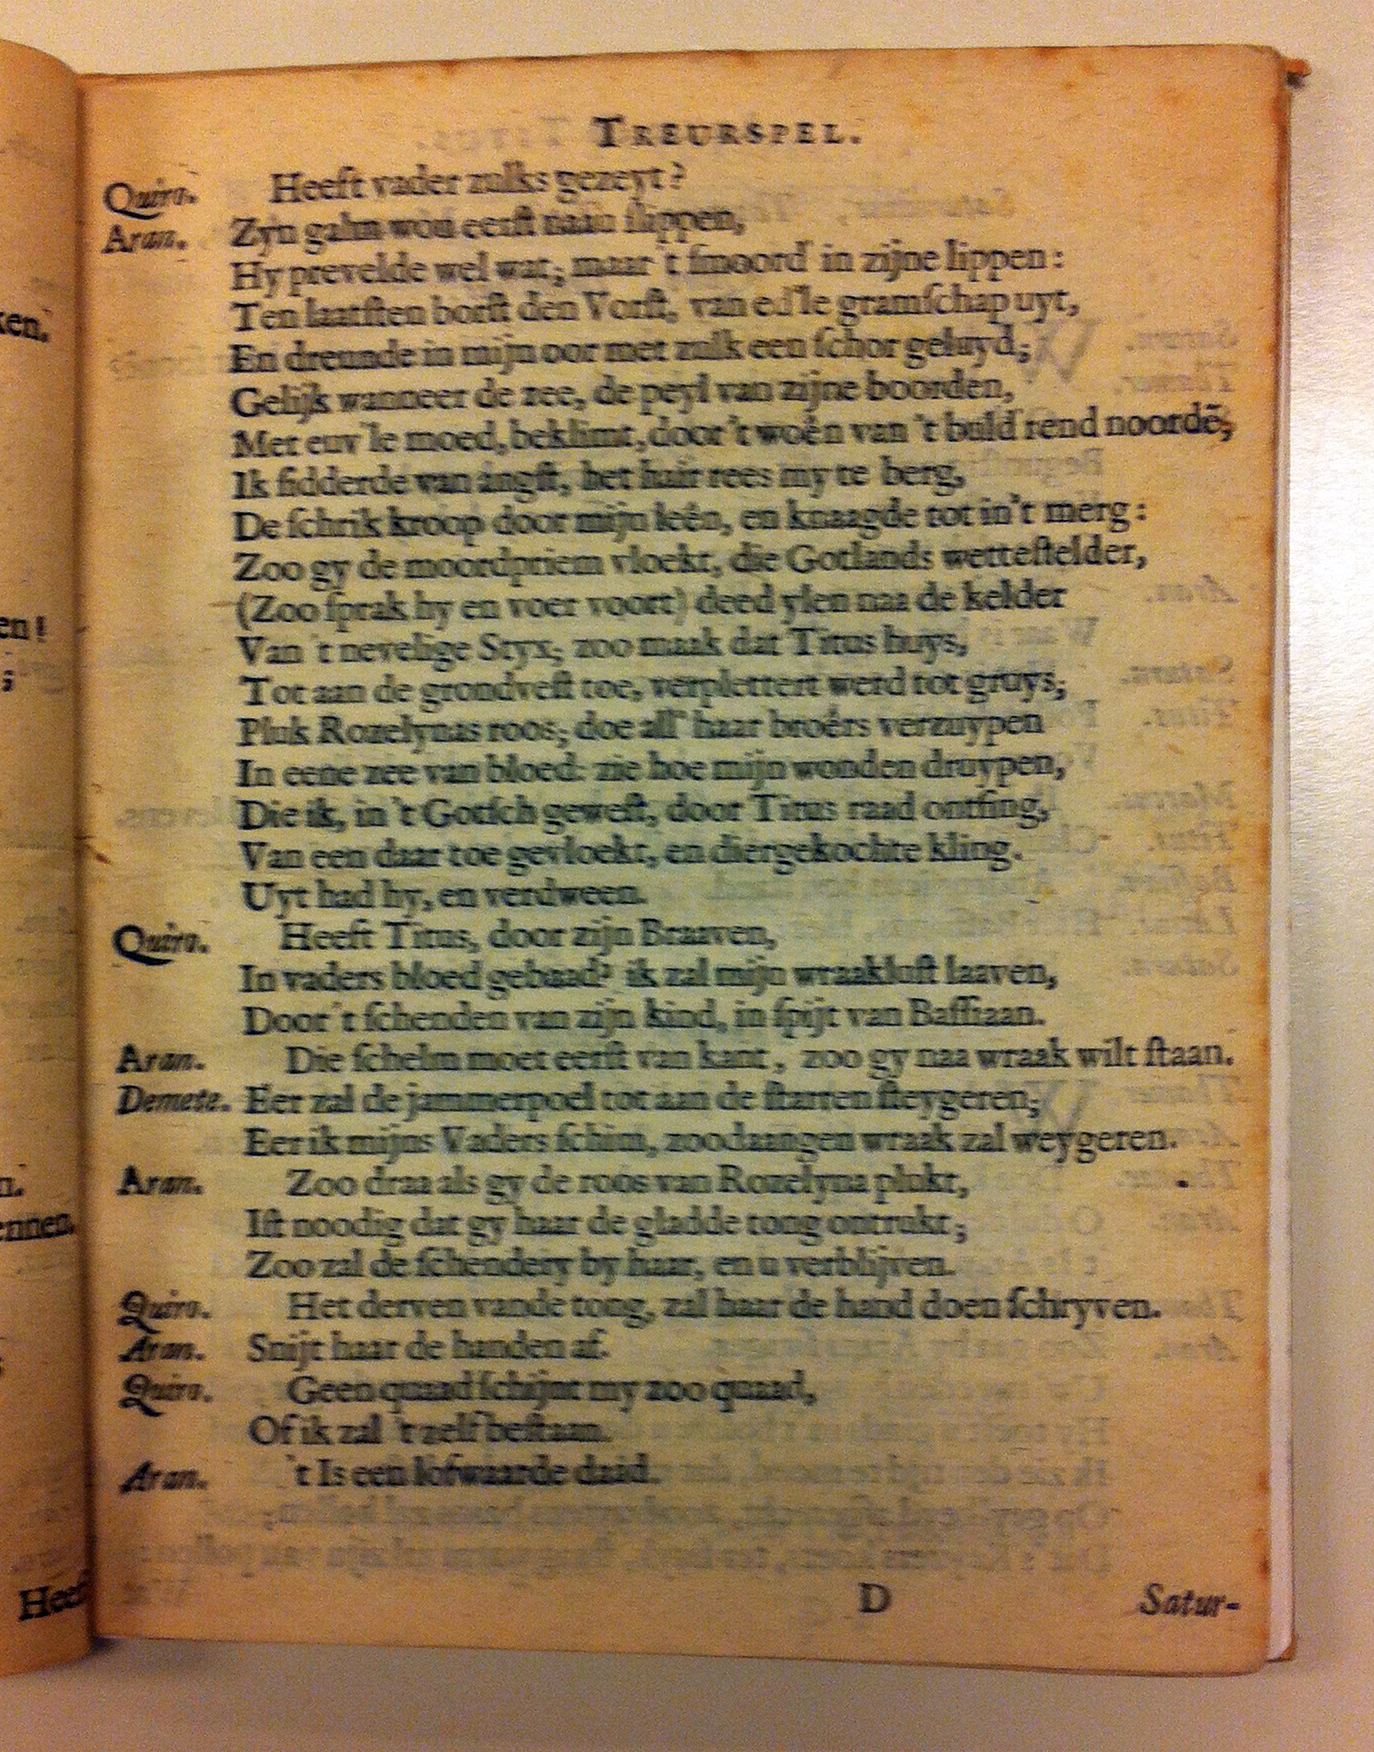 TREURSPEL.
Quiro. Heeft vader zulks gezeyt?
Aran. Zyn galm wou eerst naau slippen,
Hy prevelde wel wat; maar 't smoord' in zijne lippen:
Ten laatsten borst den Vorst, van ed'le gramschap uyt,
En dreunde in mijn oor met zulk een schor geluyd;
Gelijk wanneer de zee, de peyl van zijne boorden,
Met euv'le moed, beklimt, door 't woên van 't buld'rend noordē;
Ik sidderde van ángst, het hair rees my te berg,
De schrik kroop door mijn leên, en knaagde tot in't merg:
Zoo gy de moordpriem vloekt, die Gotlands wettestelder,
(Zoo sprak hy en voer voort) deed ylen naa de kelder
Van 't nevelige Styx; zoo maak dat Titus huys,
Tot aan de grondvest toe, verplettert werd tot gruys;
Pluk Rozelynas roos; doe all' haar broêrs verzuypen
In eene zee van bloed: zie hoe mijn wonden druypen,
Die ik, in 't Gotsch gewest, door Titus raad ontfing,
Van een daar toe gevloekt, en diergekochte kling.
Uyt had hy, en verdween.
Quiro. Heeft Titus, door zijn Braaven,
In vaders bloed gebaad? ik zal mijn wraaklust laaven,
Door 't schenden van zijn kind, in spijt van Bassiaan.
Aran. Die schelm moet eerst van kant, zoo gy naa wraak wilt staan.
Demete. Eer zal de jammerpoel tot aan de starren steygeren;
Eer ik mijns Vaders schim, zoodaangen wraak zal weygeren.
Aran. Zoo draa als gy de roos van Rozelyna plukt,
Ist noodig dat gy haar de gladde tong ontrukt;
Zoo zal de schendery by haar, en u verblijven.
Quiro. Het derven vande tong, zal haar de hand doen schryven.
Aran. Snijt haar de handen af.
Quiro. Geen quaad schijnt my zoo quaad,
Of ik zal 't zelf bestaan.
Aran. 't Is een lofwaarde daad.
D Satur-